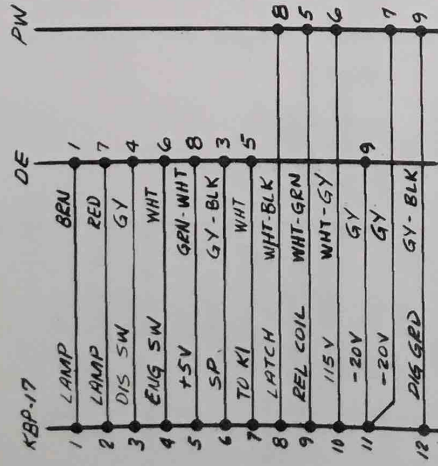 KBP-17 DE PW
1 LAMP BRN 1
2 LAMP RED 7
3 DIS SW GY 4
4 ENG SW WHT 6
5 +5V GRN-WHT 8
6 SP. GY-BLK 3
7 TO K1 WHT 5
8 LATCH WHT-BLK 8
9 REL COIL WHT-GRN 5
10 115V WHT-GY 6
11 -20V GY 9
-20V GY 7
12 DIG GRD GY-BLK 9